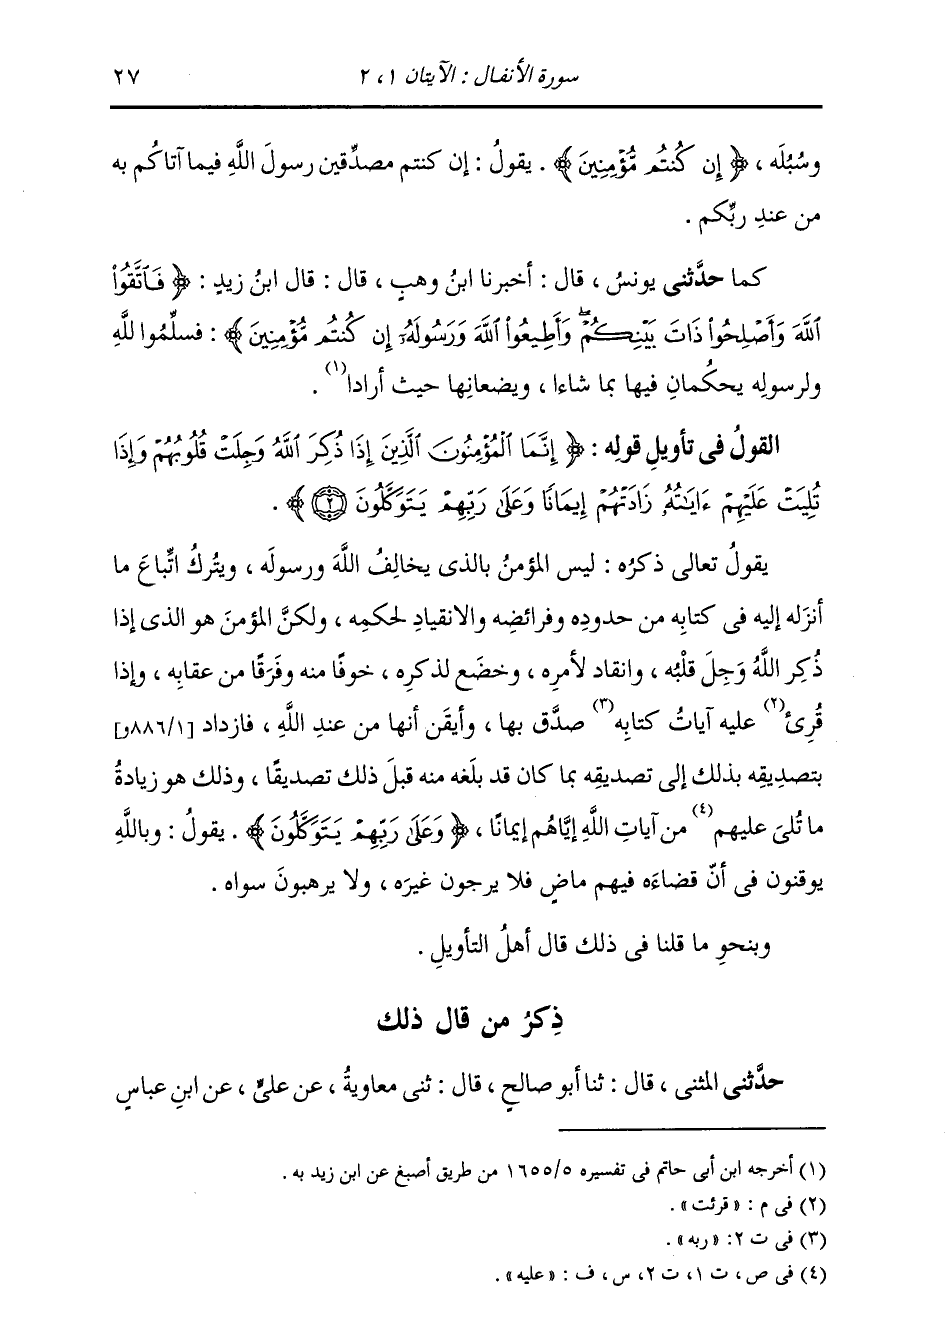 سورة الأنفال : الآيتان ١ ، ٢ ٢٧
وسُبُلَه ، ﴿ إِن كُنتُم مُّؤْمِنِينَ ﴾ . يقولُ : إن كنتم مصدِّقين رسولَ اللَّهِ فيما آتاكُم به
من عندِ ربِّكم .
كما حدَّثنى يونسُ ، قال : أخبرنا ابنُ وهبٍ ، قال : قال ابنُ زيدٍ : ﴿ فَٱتَّقُوا۟
ٱللَّهَ وَأَصْلِحُوا۟ ذَاتَ بَيْنِكُمْ ۖ وَأَطِيعُوا۟ ٱللَّهَ وَرَسُولَهُۥٓ إِن كُنتُم مُّؤْمِنِينَ ﴾ : فسلِّمُوا للَّهِ
ولرسولِه يحكُمانِ فيها بما شاءا ، ويضعانِها حيث أرادا(١) .
القولُ فى تأويلِ قولِه : ﴿ إِنَّمَا ٱلْمُؤْمِنُونَ ٱلَّذِينَ إِذَا ذُكِرَ ٱللَّهُ وَجِلَتْ قُلُوبُهُمْ وَإِذَا
تُلِيَتْ عَلَيْهِمْ ءَايَٰتُهُۥ زَادَتْهُمْ إِيمَٰنًا وَعَلَىٰ رَبِّهِمْ يَتَوَكَّلُونَ ۝٢ ﴾ .
يقولُ تعالى ذكرُه : ليس المؤمنُ بالذى يخالِفُ اللَّهَ ورسولَه ، ويتركُ اتِّباعَ ما
أنزَله إليه فى كتابِه من حدودِه وفرائضِه والانقيادِ لحكمِه ، ولكنَّ المؤمنَ هو الذى إذا
ذُكِر اللَّهُ وَجِلَ قلْبُه ، وانقاد لأمرِه ، وخضَع لذكرِه ، خوفًا منه وفَرَقًا من عقابِه ، وإذا
قُرِئ(٢) عليه آياتُ كتابِه(٣) صدَّق بها ، وأيقَن أنها من عندِ اللَّهِ ، فازداد [٨٨٦/١و]
بتصدِيقِه بذلك إلى تصديقِه بما كان قد بلَغه منه قبلَ ذلك تصديقًا ، وذلك هو زيادةُ
ما تُلىَ عليهم(٤) من آياتِ اللَّهِ إيَّاهُم إيمانًا ، ﴿ وَعَلَىٰ رَبِّهِمْ يَتَوَكَّلُونَ ﴾ . يقولُ : وباللَّهِ
يوقنون فى أنّ قضاءَه فيهم ماضٍ فلا يرجون غيرَه ، ولا يرهبونَ سواه .
وبنحوِ ما قلنا فى ذلك قال أهلُ التأويلِ .
ذِكرُ من قال ذلك
حدَّثنى المثنى ، قال : ثنا أبو صالحٍ ، قال : ثنى معاويةُ ، عن علىٍّ ، عن ابنِ عباسٍ
(١) أخرجه ابن أبى حاتم فى تفسيره ١٦٥٥/٥ من طريق أصبغ عن ابن زيد به .
(٢) فى م : « قرئت » .
(٣) فى ت ٢: « ربه » .
(٤) فى ص ، ت ١، ت ٢، س ، ف : « عليه » .